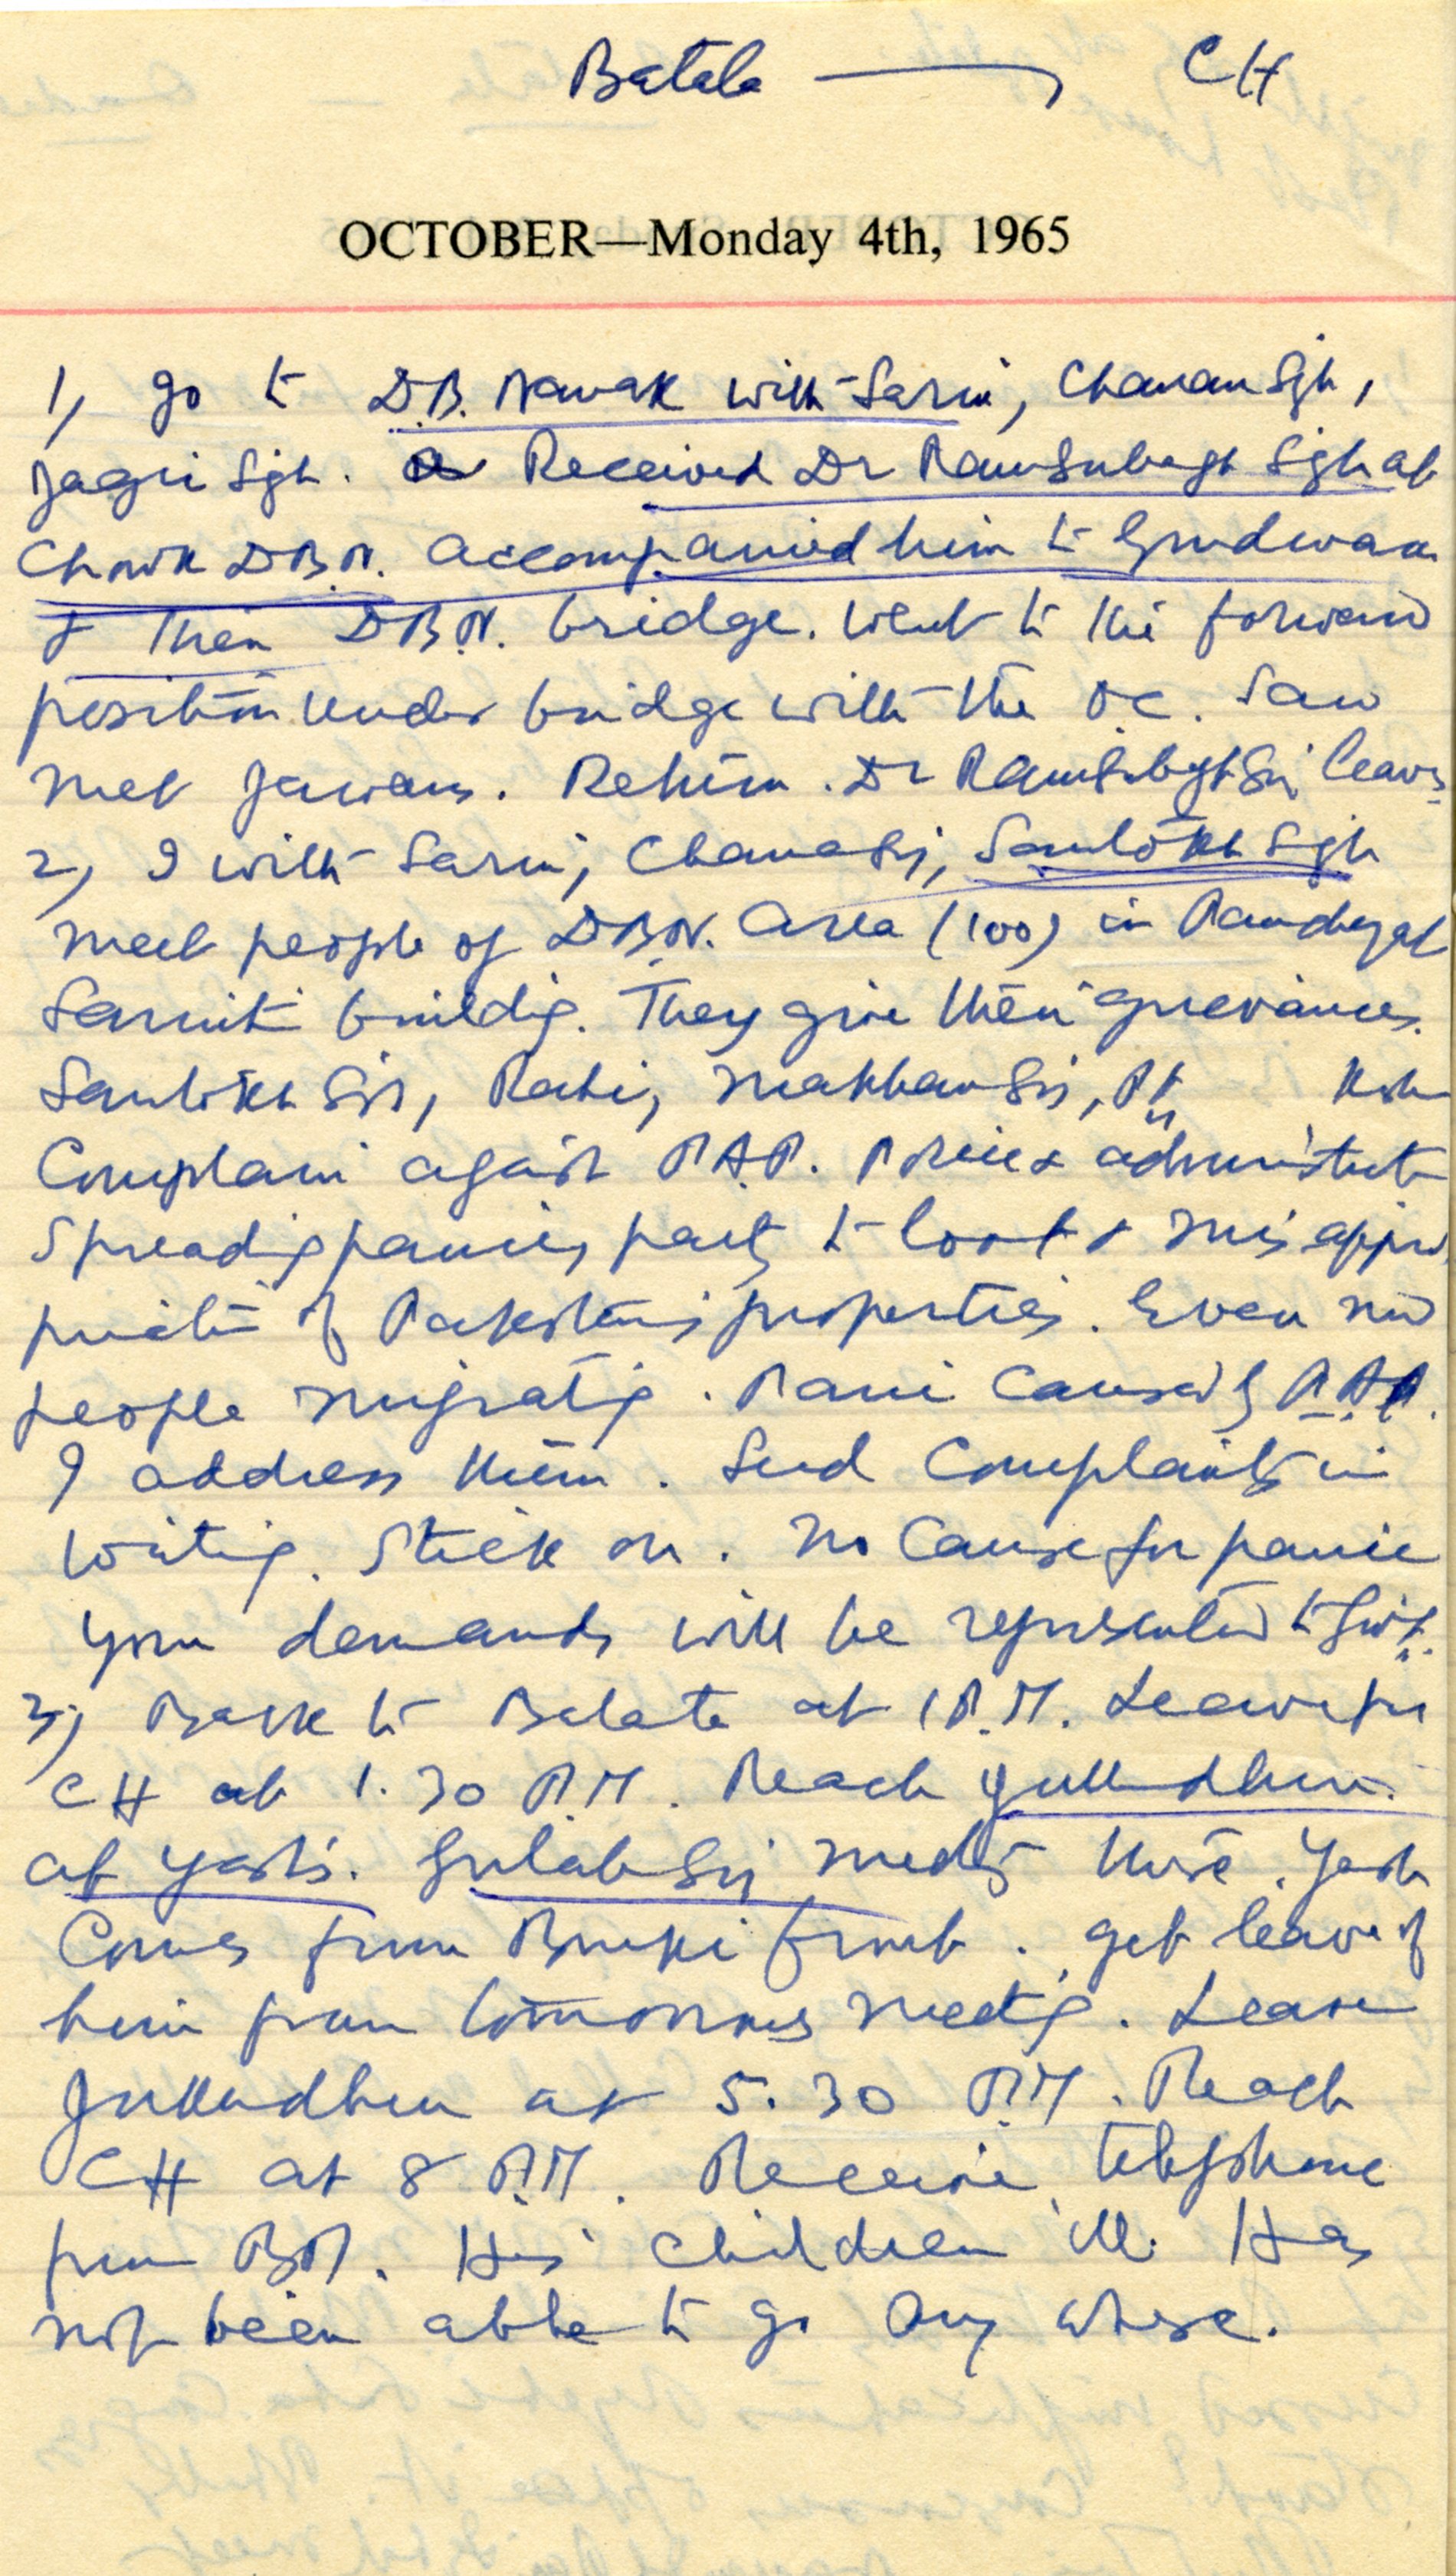 Batala → CH
OCTOBER—Monday 4th, 1965
1, go to D.B. Nanak with Sarin, Chanan Sgh,
Jagir Sgh. Received Dr Ramsubagh Sgh at
Chowk D.B.N. accompanied him to Gurdwara
& then D.B.N. bridge. Went to the forward
position under bridge with the O.C. Saw
met Jawans. Return. Dr Ramsubagh Sin leaves
2, I with Sarin, Chanan Sij, Santokh Sgh
meet people of D.B.N. area (100) in Panchayat
Samiti buildig. They give their grievances.
Santokh Sin, Rahi, Makhan Sij, Pt
Complain against P.A.P. Police & administrati
Spreadig panic, party to loot & misappro
priation of Pakistanis properties. Even now
people migratig. Panic caused by P.A.P.
I address them. Send complaints in
writig. Stick on. No cause for panic
Your demands will be represented to Govt.
3, Back to Batala at 1 P.M. Leave for
CH at 1.30 P.M. Reach Jullundhur
at Yash's. Gulab Sij meets there. Yash
Comes from Burki front. get leave of
him from tomorrows meetig. Leave
Jullundhur at 5.30 P.M. Reach
CH at 8 P.M. Receive telephone
from BN. His children ill. Has
not been able to go any where.